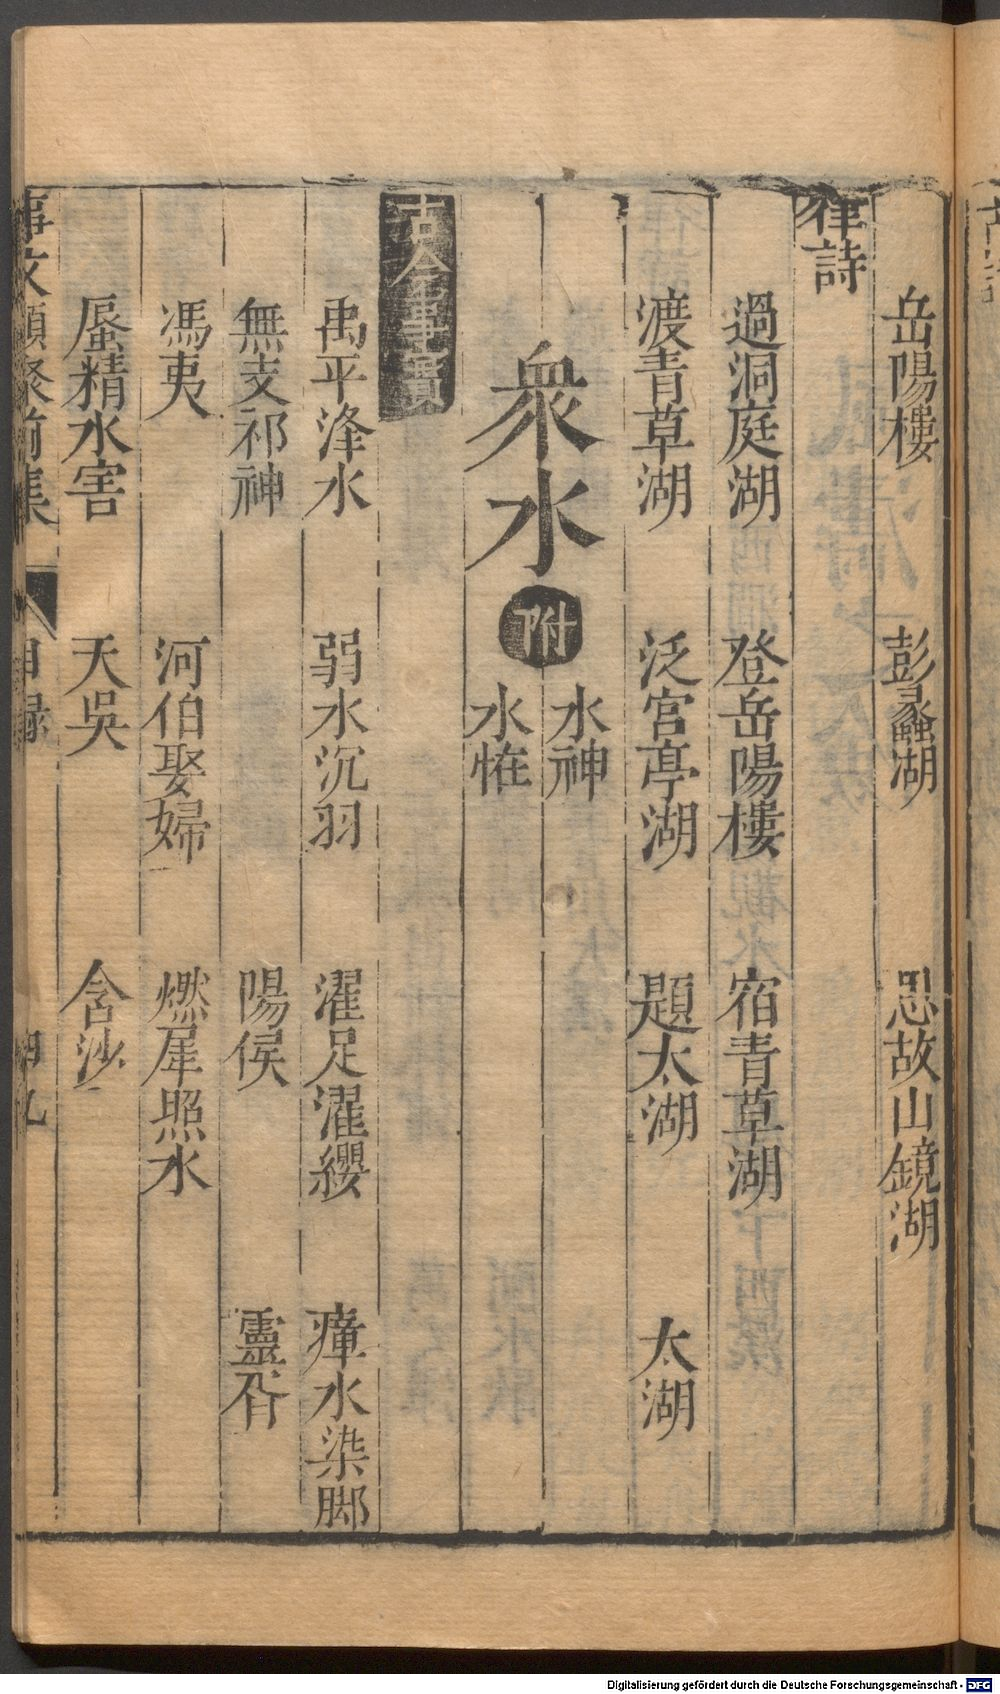 岳陽樓 彭蠡湖 思故山鏡湖
律詩
過洞庭湖 登岳陽樓 宿青草湖
渡青草湖 泛宮亭湖 題太湖 太湖
衆水 附 水神 水恠
古今事實
禹平洚水 弱水沉羽 濯足濯纓 瘴水染脚
無支祁神 陽侯 靈胥
馮夷 河伯娶婦 燃犀照水
蜃精水害 天吳 含沙
事文類聚前集 目録
Digitalisierung gefördert durch die Deutsche Forschungsgemeinschaft - DFG